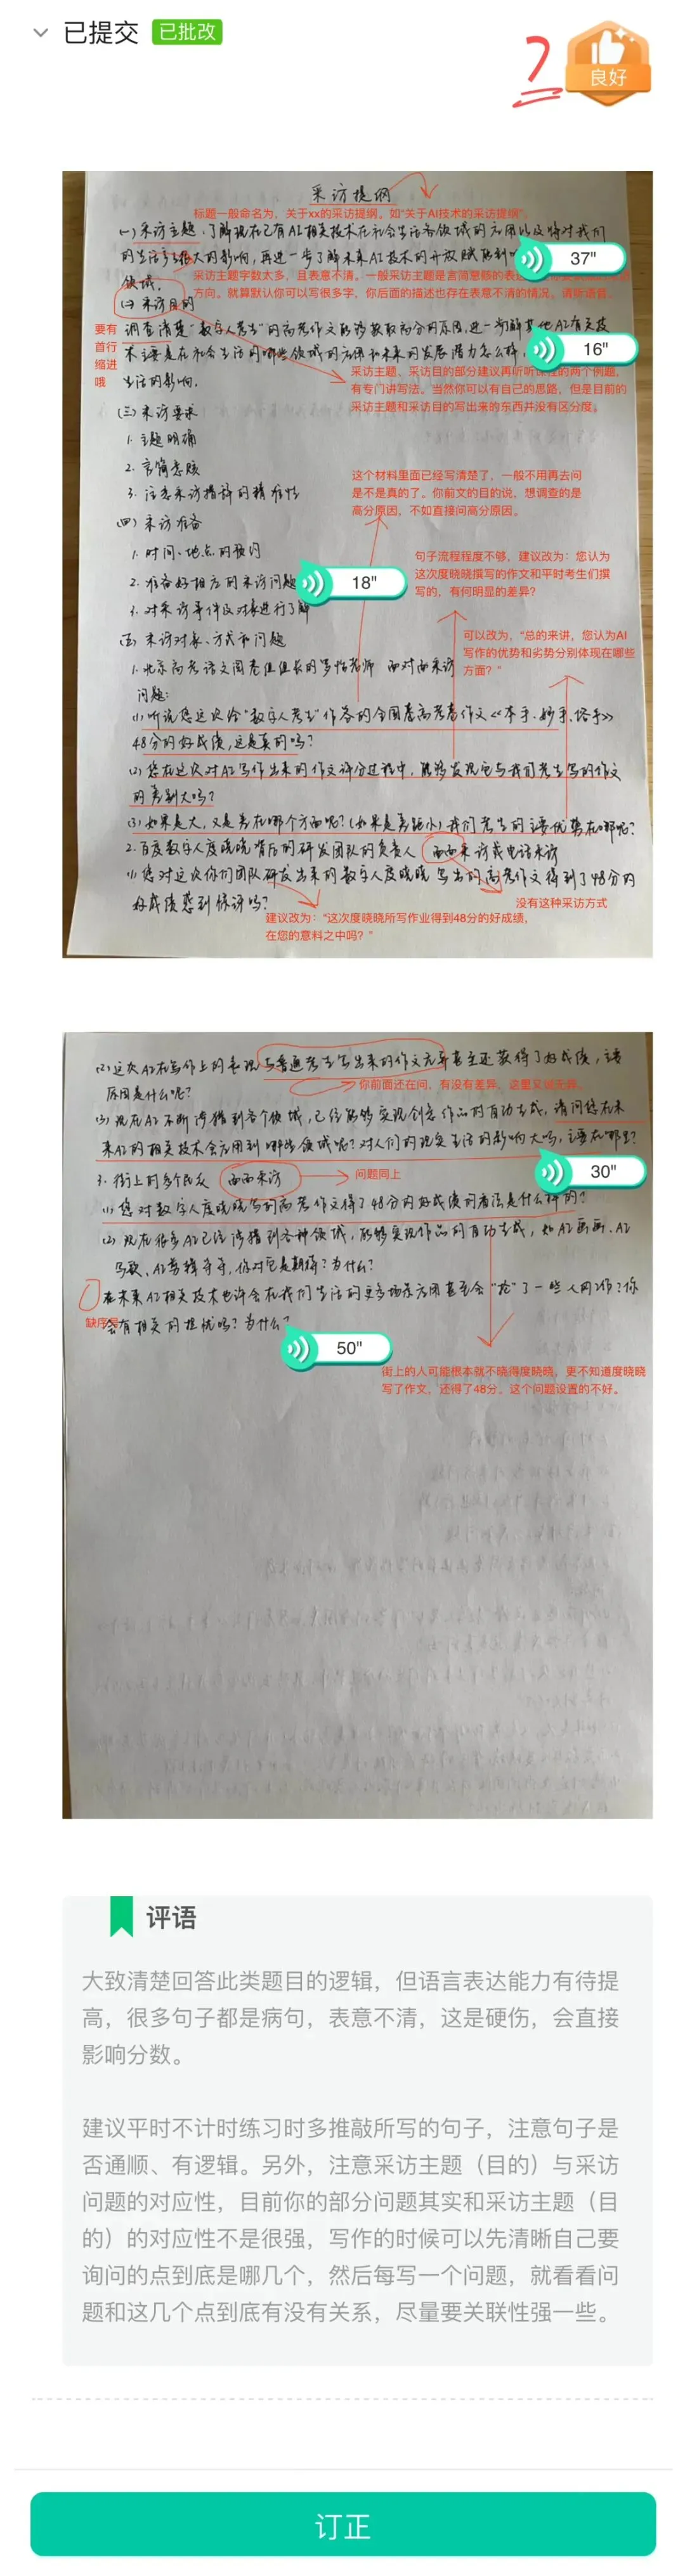 已提交 已批改
7
良好
采访提纲
标题一般命名为，关于xx的采访提纲。如“关于AI技术的采访提纲”。
(一) 采访主题：了解现在已有AI相关技术在社会生活各领域的应用以及将对我们
的生活多大的影响，再进一步了解未来AI技术的开放赋能到
37"
领域。
采访主题字数太多，且表意不清。一般采访主题是言简意赅的表达
方向。就算默认你可以写很多字，你后面的描述也存在表意不清的情况。请听语音。
(二) 采访目的
要有首行缩进哦
调查清楚“数字人考生”的高考作文能够获取高分的原因，进一步了解其他AI有关技
术主要是在社会生活的哪些领域的应用和未来的发展潜力怎么样，
16"
生活的影响。
采访主题、采访目的部分建议再听听课程的两个例题，
有专门讲写法。当然你可以有自己的思路，但是目前的
采访主题和采访目的写出来的东西并没有区分度。
(三) 采访要求
1. 主题明确
2. 言简意赅
3. 注意采访措辞的精准性
这个材料里面已经写清楚了，一般不用再去问
是不是真的了。你前文的目的说，想调查的是
高分原因，不如直接问高分原因。
(四) 采访准备
1. 时间、地点的预约
2. 准备好相应的采访问题
18"
3. 对采访事件及对象进行了解
句子流程程度不够，建议改为：您认为
这次度晓晓撰写的作文和平时考生们撰
写的，有何明显的差异？
(五) 采访对象、方式和问题
可以改为，“总的来讲，您认为AI
写作的优势和劣势分别体现在哪些
方面？”
1. 北京高考语文阅卷组组长的老师 面对面采访
问题：
(1) 听说您这次给“数字人考生”作答的全国卷高考卷作文《本手、妙手、俗手》
48分的好成绩，这是真的吗？
(2) 您在这次对AI写作出来的作文评分过程中，能够发现它与我们考生写的作文
的差别大吗？
(3) 如果是大，又是差在哪个方面呢？(如果是差距小) 我们考生的主要优势在哪呢？
2. 百度数字人度晓晓背后的研发团队的负责人 面面采访或电话采访
没有这种采访方式
(1) 您对这次你们团队研发出来的数字人度晓晓写出的高考作文得到了48分的
好成绩感到惊讶吗？
建议改为：“这次度晓晓所写作业得到48分的好成绩，
在您的意料之中吗？”
(2) 这次AI在写作上的表现与普通考生写出来的作文无异甚至还获得了好成绩，主要
原因是什么呢？
你前面还在问，有没有差异，这里又说无异。
(3) 现在AI不断涉猎到各个领域，已经能够实现创意作品的自动生成，请问您在未
来AI的相关技术会应用到哪些领域呢？对人们的现实生活的影响大吗，主要在哪里？
3. 街上的各个民众 面面采访
问题同上
30"
(1) 您对数字人度晓晓写的高考作文得了48分的好成绩的看法是什么样的？
(2) 现在很多AI已经涉猎到各种领域，能够实现作品的自动生成，如AI画画、AI
写歌、AI剪辑等等，你对它是期待？为什么？
在未来AI相关技术也许会在我们生活的更多场景应用甚至会“抢”了一些人的工作？你
缺序号
会有相关的担忧吗？为什么？
50"
街上的人可能根本就不晓得度晓晓，更不知道度晓晓
写了作文，还得了48分，这个问题设置的不好。
评语
大致清楚回答此类题目的逻辑，但语言表达能力有待提
高，很多句子都是病句，表意不清，这是硬伤，会直接
影响分数。
建议平时不计时练习时多推敲所写的句子，注意句子是
否通顺、有逻辑。另外，注意采访主题（目的）与采访
问题的对应性，目前你的部分问题其实和采访主题（目
的）的对应性不是很强，写作的时候可以先清晰自己要
询问的点到底是哪几个，然后每写一个问题，就看看问
题和这几个点到底有没有关系，尽量要关联性强一些。
订正